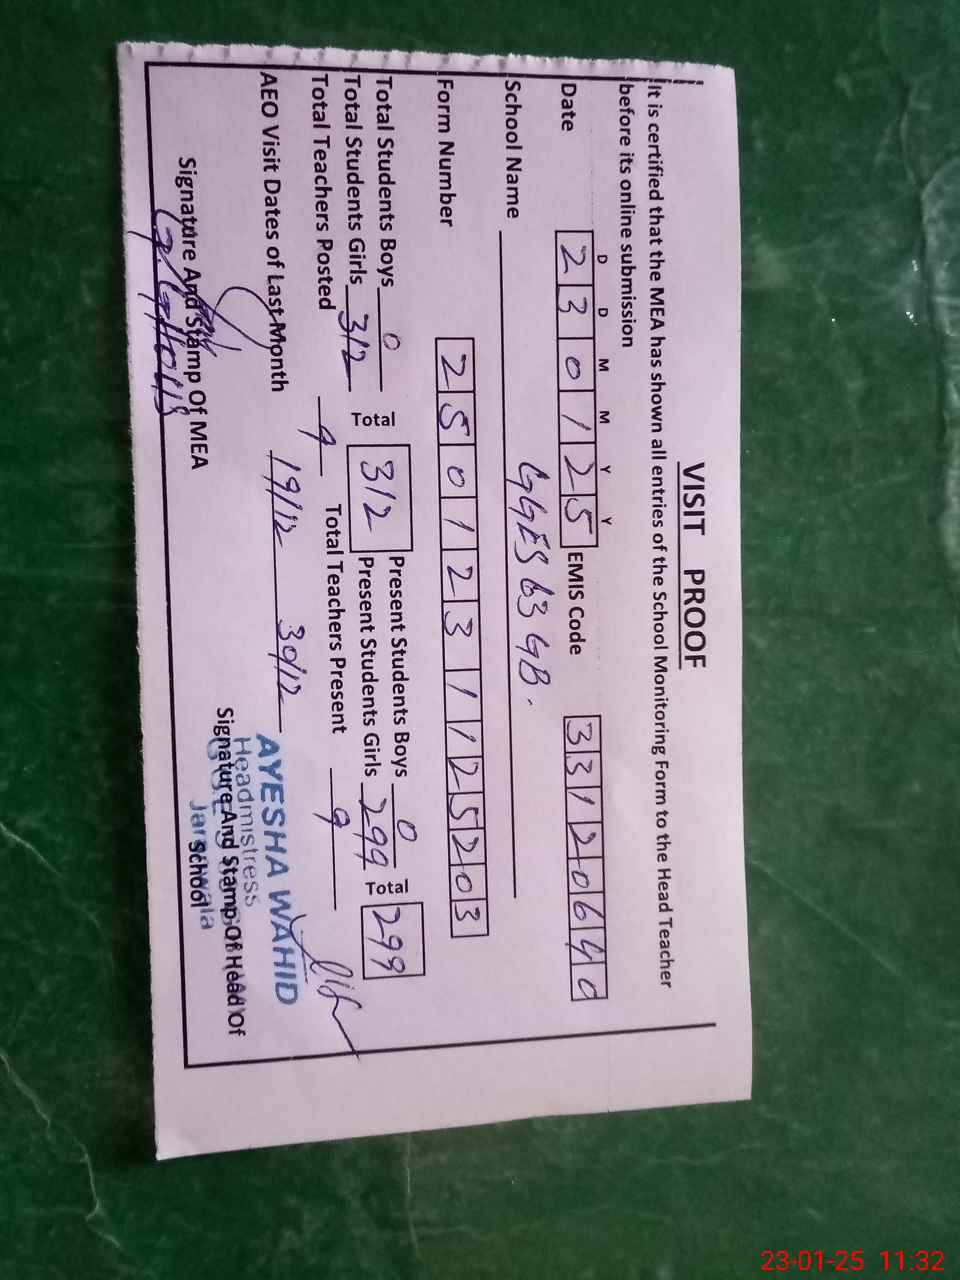 VISIT PROOF
It is certified that the MEA has shown all entries of the School Monitoring Form to the Head Teacher
before its online submission
D D M M Y Y
Date 230125 EMIS Code 33120640
School Name GGES 63 GB.
Form Number 2501231125203
Total Students Boys 0 Present Students Boys 0
Total Students Girls 312 Total 312 Present Students Girls 299 Total 299
Total Teachers Posted 9 Total Teachers Present 9
AEO Visit Dates of Last Month 19/12 30/12
AYESHA WAHID
Headmistress
Signature And Stamp Of MEA
Signature And Stamp Of Head Of
School
Jaranwala
23-01-25 11:32